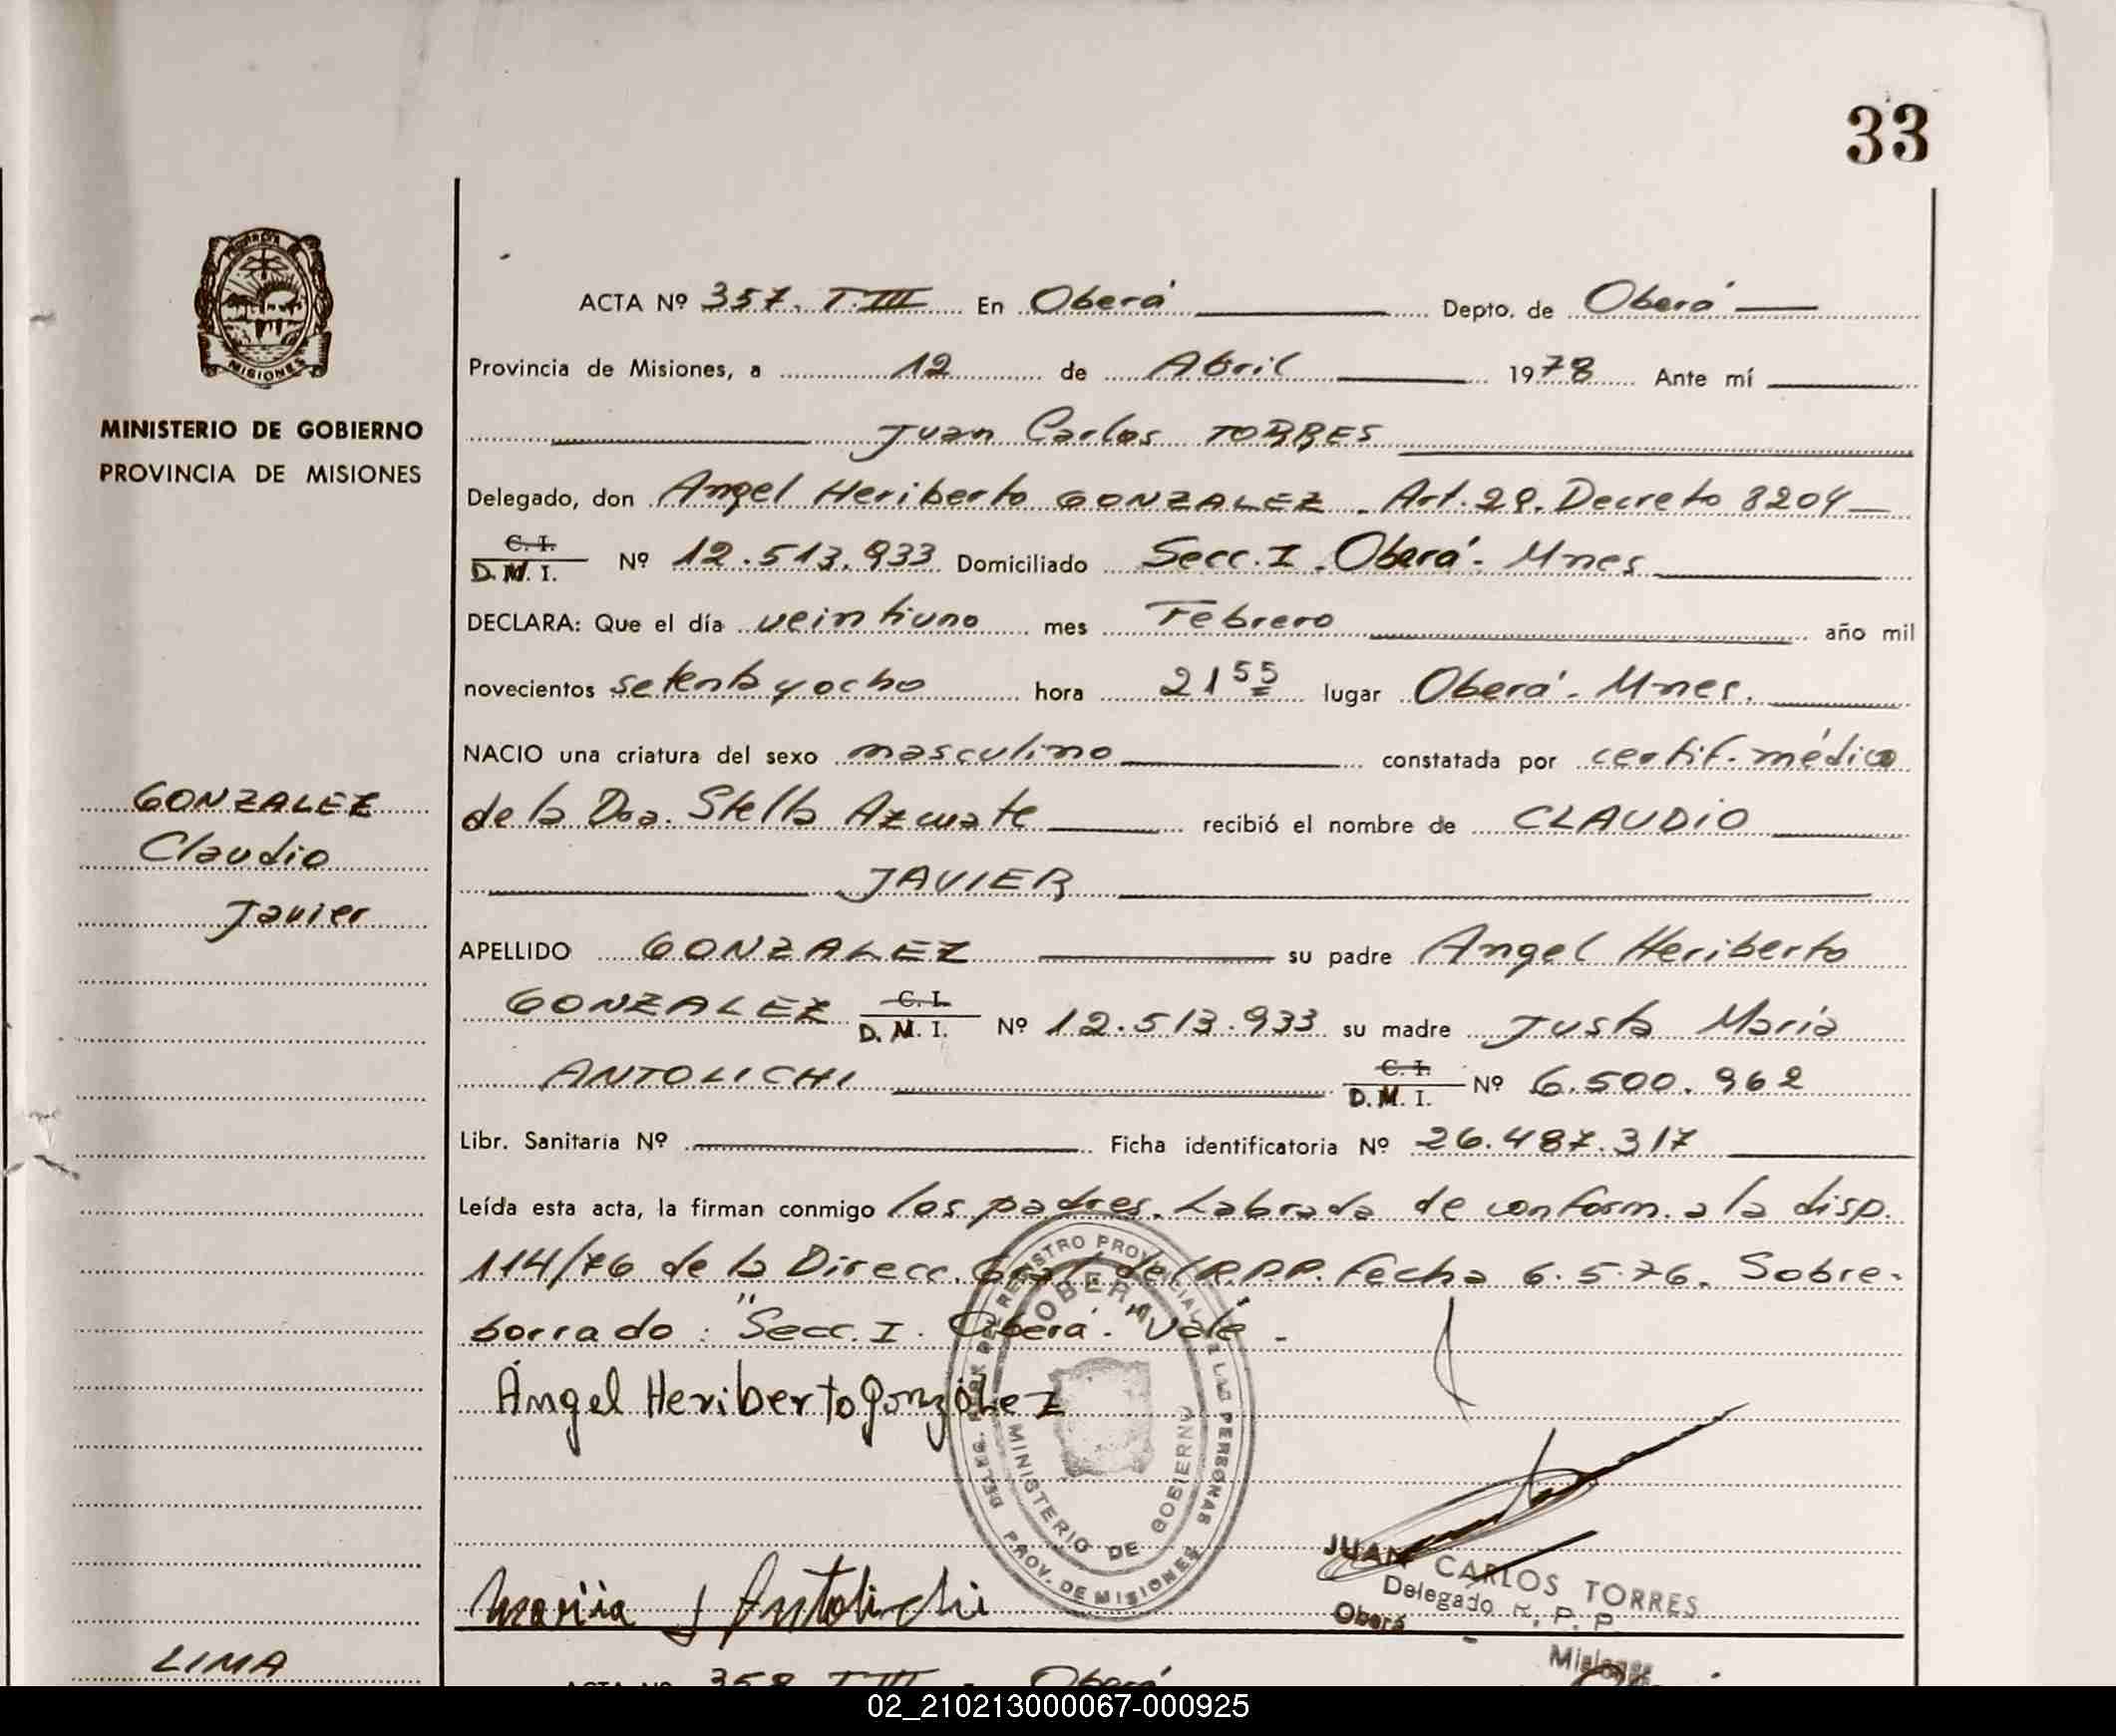 33
MISIONES
MINISTERIO DE GOBIERNO
PROVINCIA DE MISIONES
ACTA Nº 357. T. III En Oberá Depto. de Oberá
Provincia de Misiones, a 12 de Abril 1978 Ante mí
Juan Carlos TORRES
Delegado, don Angel Heriberto GONZALEZ. Art. 29. Decreto 8204
C. I.
D. M. I. Nº 12.513.933 Domiciliado Secc. I. Oberá - Mnes
DECLARA: Que el día veintiuno mes Febrero año mil
novecientos setenta y ocho hora 21 55 lugar Oberá - Mnes.
NACIO una criatura del sexo masculino constatada por certif. médico
de la Dra. Stella recibió el nombre de CLAUDIO
JAVIER
APELLIDO GONZALEZ su padre Angel Heriberto
GONZALEZ C. I. D. M. I. Nº 12.513.933 su madre Justa María
ANTOLICHI C. I. D. M. I. Nº 6.500.962
Libr. Sanitaria Nº Ficha identificatoria Nº 26.487.317
Leída esta acta, la firman conmigo los padres. Labrada de conform. a la disp.
114/76 de la Direcc. Gral. del R.P.P. Fecha 6.5.76. Sobre-
borrado: "Secc. I. Oberá." Vale.
GONZALEZ
Claudio
Javier
Ángel Heriberto González
REGISTRO PROVINCIAL DE LAS PERSONAS
OBERA
MINISTERIO DE GOBIERNO
PROV. DE MISIONES
María J Antolichi
JUAN CARLOS TORRES
Delegado R. P. P.
Oberá - Misiones
LIMA
ACTA Nº 358 T III Oberá
02_210213000067-000925